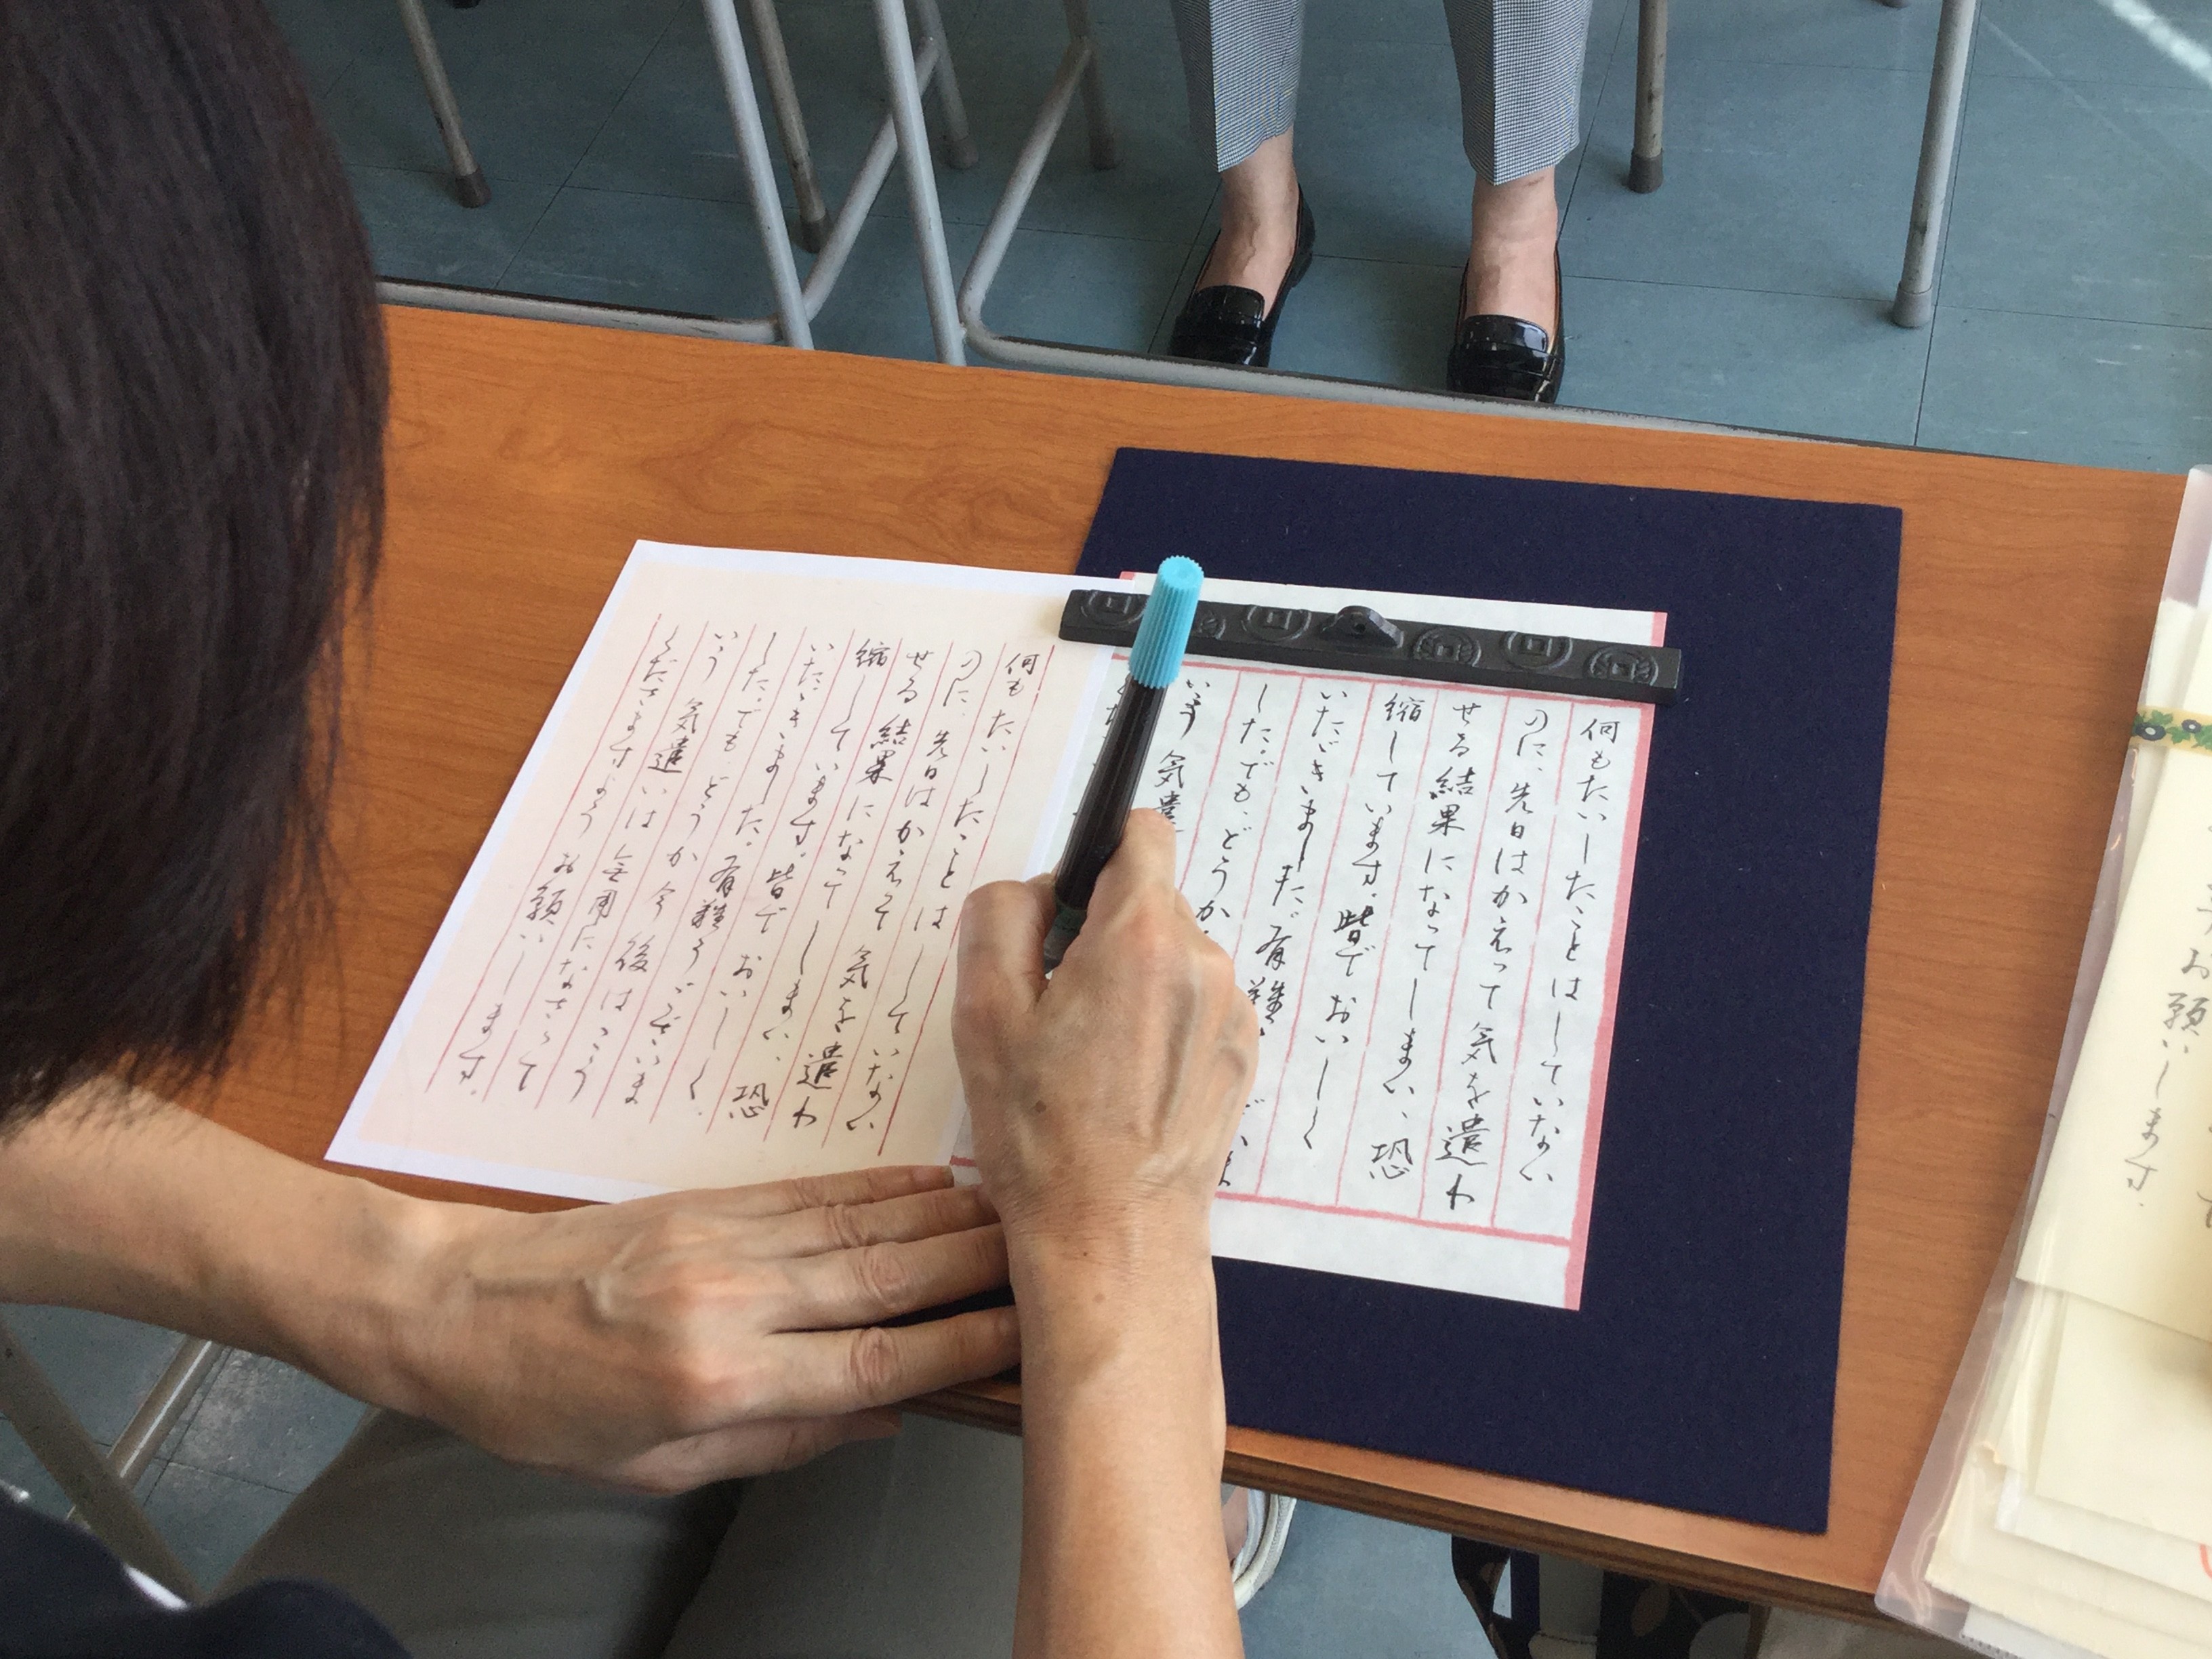 何もたいしたことはしていない
のに、先日はかえって気を遣わ
せる結果になってしまい、恐
縮しています。皆でおいしく
いただきました。有難うございま
した。でも、どうか今後はこう
いう気遣いは無用になさって
くださいますようお願いします。
何もたいしたことはしていない
のに、先日はかえって気を遣わ
せる結果になってしまい、恐
縮しています。皆でおいしく
いただきました。有難
した。でも、どうか
いう気遣
お願いします。